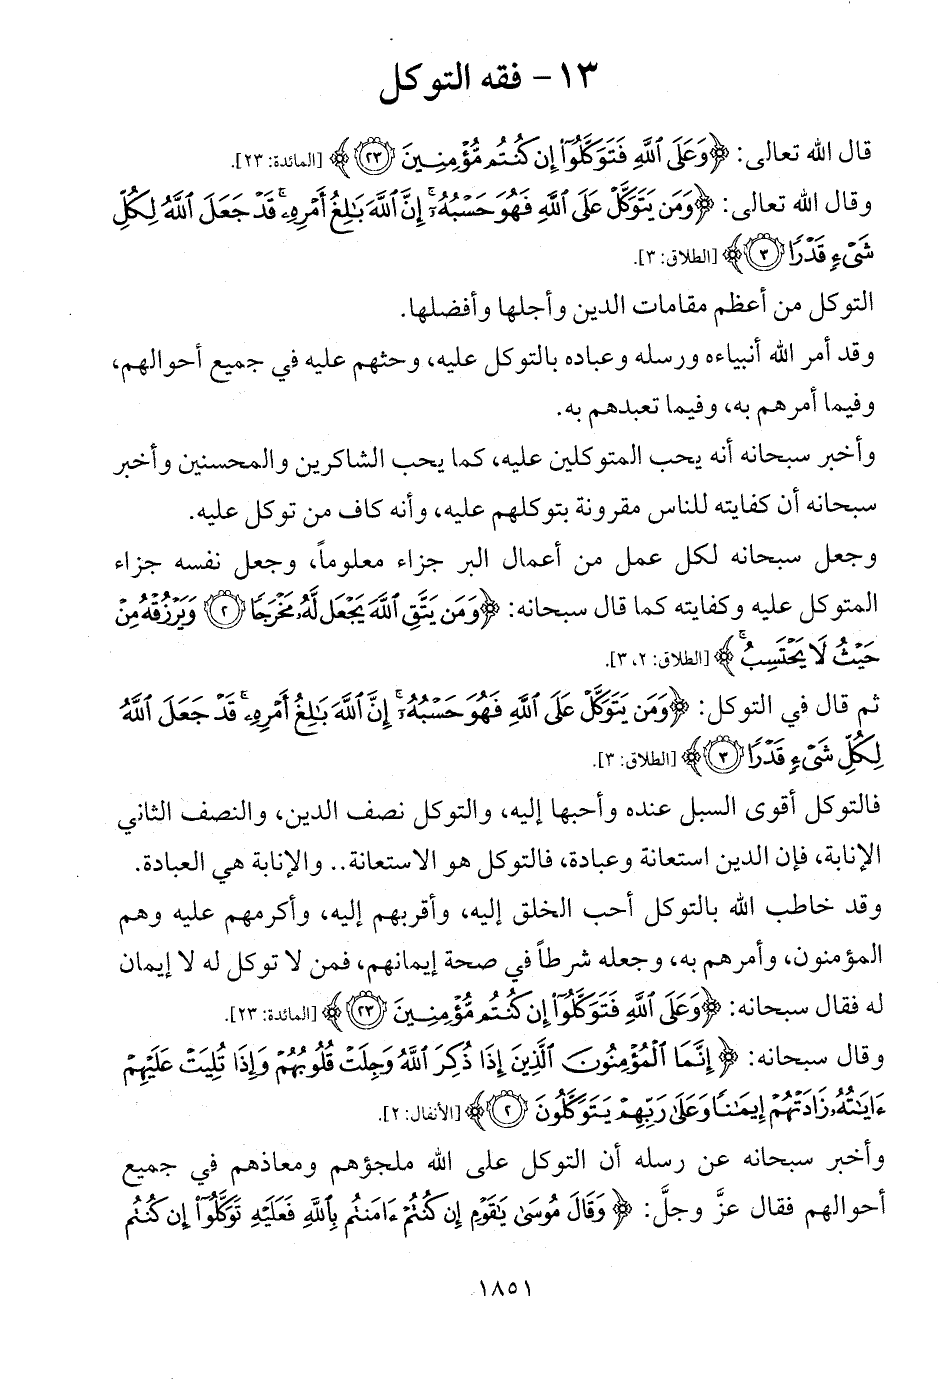 ١٣ - فقه التوكل
قال الله تعالى: ﴿وَعَلَى ٱللَّهِ فَتَوَكَّلُوٓا۟ إِن كُنتُم مُّؤْمِنِينَ ٢٣﴾ [المائدة: ٢٣].
وقال الله تعالى: ﴿وَمَن يَتَوَكَّلْ عَلَى ٱللَّهِ فَهُوَ حَسْبُهُۥٓ ۚ إِنَّ ٱللَّهَ بَٰلِغُ أَمْرِهِۦ ۚ قَدْ جَعَلَ ٱللَّهُ لِكُلِّ
شَىْءٍ قَدْرًا ٣﴾ [الطلاق: ٣].
التوكل من أعظم مقامات الدين وأجلها وأفضلها.
وقد أمر الله أنبياءه ورسله وعباده بالتوكل عليه، وحثهم عليه في جميع أحوالهم،
وفيما أمرهم به، وفيما تعبدهم به.
وأخبر سبحانه أنه يحب المتوكلين عليه، كما يحب الشاكرين والمحسنين وأخبر
سبحانه أن كفايته للناس مقرونة بتوكلهم عليه، وأنه كاف من توكل عليه.
وجعل سبحانه لكل عمل من أعمال البر جزاء معلوماً، وجعل نفسه جزاء
المتوكل عليه وكفايته كما قال سبحانه: ﴿وَمَن يَتَّقِ ٱللَّهَ يَجْعَل لَّهُۥ مَخْرَجًا ٢ وَيَرْزُقْهُ مِنْ
حَيْثُ لَا يَحْتَسِبُ ۚ﴾ [الطلاق: ٢، ٣].
ثم قال في التوكل: ﴿وَمَن يَتَوَكَّلْ عَلَى ٱللَّهِ فَهُوَ حَسْبُهُۥٓ ۚ إِنَّ ٱللَّهَ بَٰلِغُ أَمْرِهِۦ ۚ قَدْ جَعَلَ ٱللَّهُ
لِكُلِّ شَىْءٍ قَدْرًا ٣﴾ [الطلاق: ٣].
فالتوكل أقوى السبل عنده وأحبها إليه، والتوكل نصف الدين، والنصف الثاني
الإنابة، فإن الدين استعانة وعبادة، فالتوكل هو الاستعانة.. والإنابة هي العبادة.
وقد خاطب الله بالتوكل أحب الخلق إليه، وأقربهم إليه، وأكرمهم عليه وهم
المؤمنون، وأمرهم به، وجعله شرطاً في صحة إيمانهم، فمن لا توكل له لا إيمان
له فقال سبحانه: ﴿وَعَلَى ٱللَّهِ فَتَوَكَّلُوٓا۟ إِن كُنتُم مُّؤْمِنِينَ ٢٣﴾ [المائدة: ٢٣].
وقال سبحانه: ﴿إِنَّمَا ٱلْمُؤْمِنُونَ ٱلَّذِينَ إِذَا ذُكِرَ ٱللَّهُ وَجِلَتْ قُلُوبُهُمْ وَإِذَا تُلِيَتْ عَلَيْهِمْ
ءَايَٰتُهُۥ زَادَتْهُمْ إِيمَٰنًا وَعَلَىٰ رَبِّهِمْ يَتَوَكَّلُونَ ٢﴾ [الأنفال: ٢].
وأخبر سبحانه عن رسله أن التوكل على الله ملجؤهم ومعاذهم في جميع
أحوالهم فقال عزَّ وجلَّ: ﴿وَقَالَ مُوسَىٰ يَٰقَوْمِ إِن كُنتُمْ ءَامَنتُم بِٱللَّهِ فَعَلَيْهِ تَوَكَّلُوٓا۟ إِن كُنتُم
١٨٥١